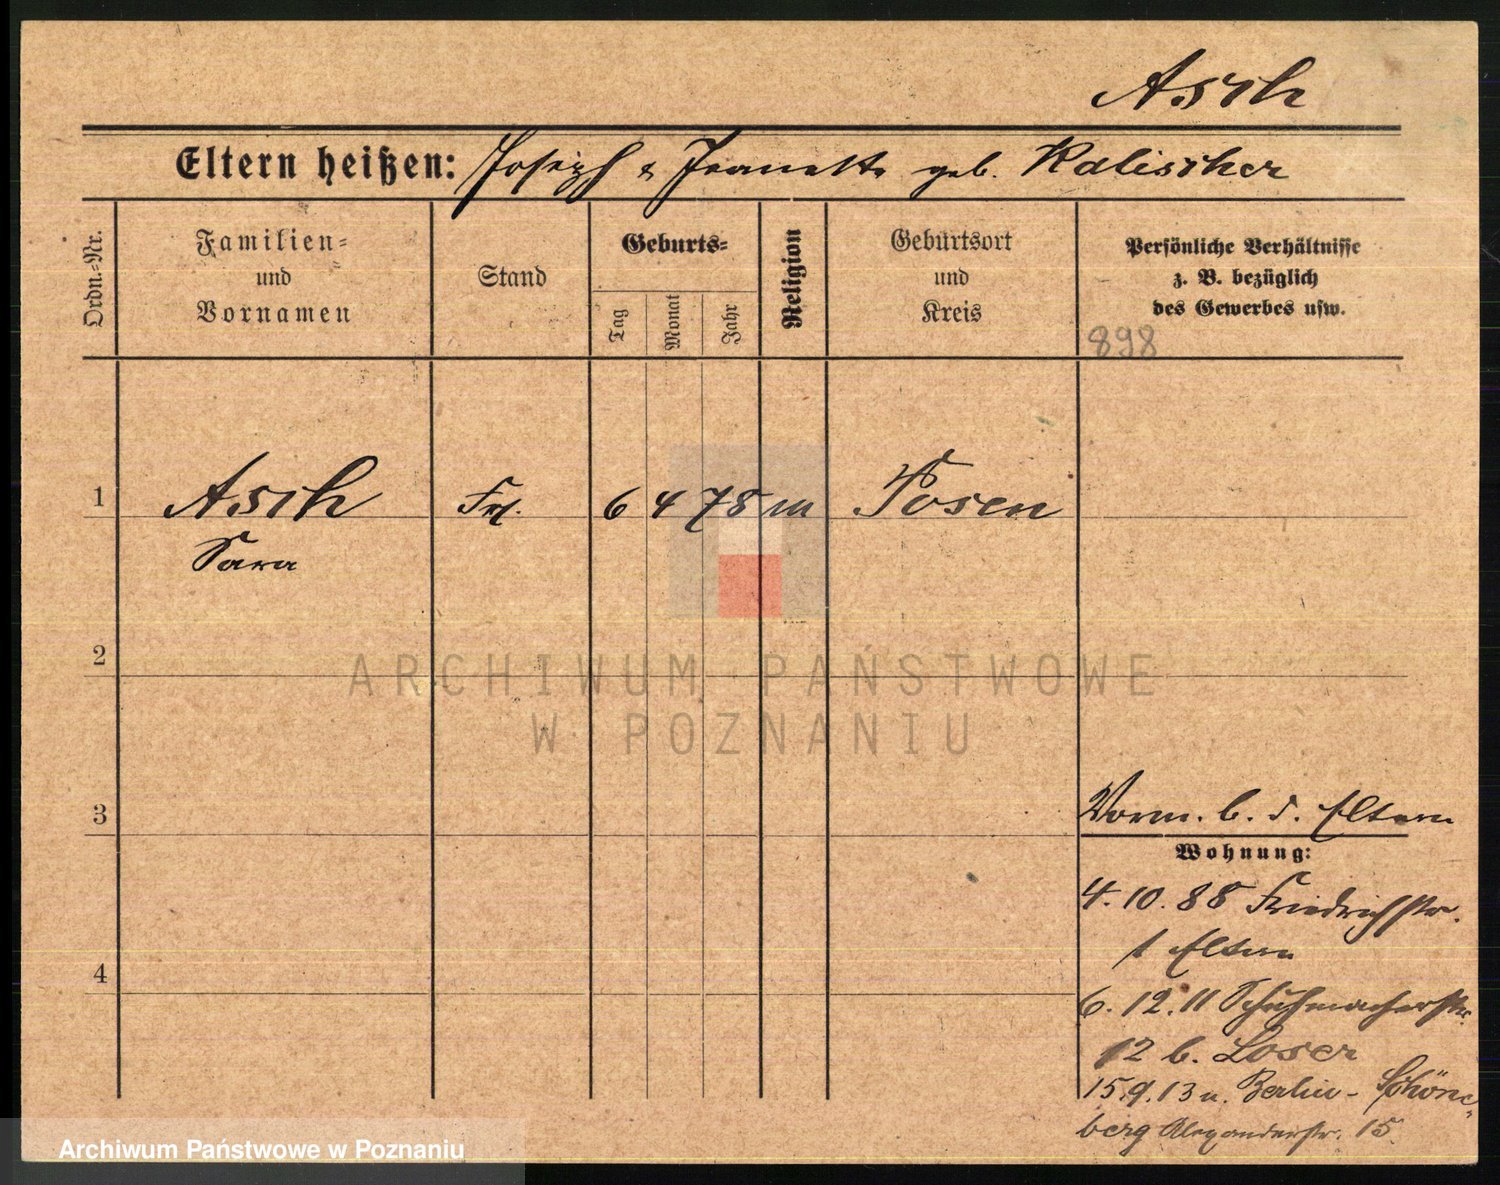 Asch
Eltern heißen: Joseph & Jeanette geb. Kalischer
Ordn.-Nr.
Familien-
und
Vornamen
Stand
Geburts-
Tag
Monat
Jahr
Religion
Geburtsort
und
Kreis
Persönliche Verhältnisse
z. B. bezüglich
des Gewerbes usw.
898
1 Asch Frl. 6 4 78 m Posen
Sara
2
ARCHIWUM PAŃSTWOWE
W POZNANIU
3
Vorm. b. d. Eltern
Wohnung:
4.10.88 Friedrichstr.
1 Eltern
4
6.12.11 Schuhmacherstr.
12 b. Loser
15.9.13 n. Berlin-Schöne-
berg Alexanderstr. 15.
Archiwum Państwowe w Poznaniu